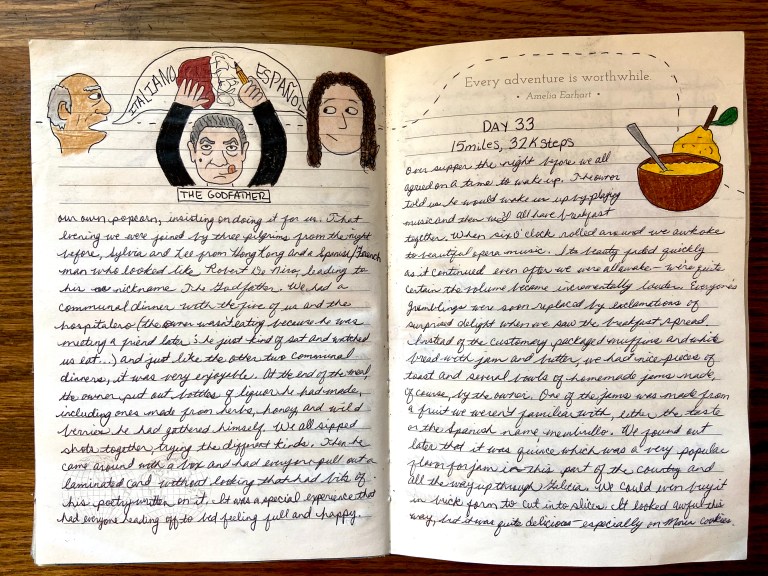 ITALIANO
ESPAÑOL
THE GODFATHER
our own popcorn, insisting on doing it for us. That
evening we were joined by three pilgrims from the night
before, Sylvia and Lee from Hong Kong and a Spanish/French
man who looked like Robert De Niro, leading to
his nickname The Godfather. We had a
communal dinner with the five of us and the
hospitalero (the owner wasn't eating because he was
meeting a friend later so he just kind of sat and watched
us eat...) and just like the other two communal
dinners, it was very enjoyable. At the end of the meal,
the owner put out bottles of liquor he had made,
including ones made from herbs, honey and wild
berries he had gathered himself. We all sipped
shots together, trying the different kinds. Then he
came around with a box and had everyone pull out a
laminated card without looking that had bits of
his poetry written on it. It was a special experience that
had everyone heading off to bed feeling full and happy.
Every adventure is worthwhile.
• Amelia Earhart •
DAY 33
15 miles, 32K steps
Over supper the night before we all
agreed on a time to wake up. The owner
told us he would wake us up by playing
music and then we'd all have breakfast
together. When six o'clock rolled around we awoke
to beautiful opera music. Its beauty faded quickly
as it continued even after we were all awake - we're quite
certain the volume became incrementally louder. Everyone's
grumblings were soon replaced by exclamations of
surprised delight when we saw the breakfast spread.
Instead of the customary packaged muffins and white
bread with jam and butter, we had nice pieces of
toast and several bowls of homemade jams made,
of course, by the owner. One of the jams was made from
a fruit we weren't familiar with, either the taste
or the Spanish name, membrillo. We found out
later that it was quince which was a very popular
flavor for jam in this part of the country and
all the way up through Galicia. We could even buy it
in brick form to cut into slices. It looked awful this
way, but it was quite delicious - especially on Maria cookies.